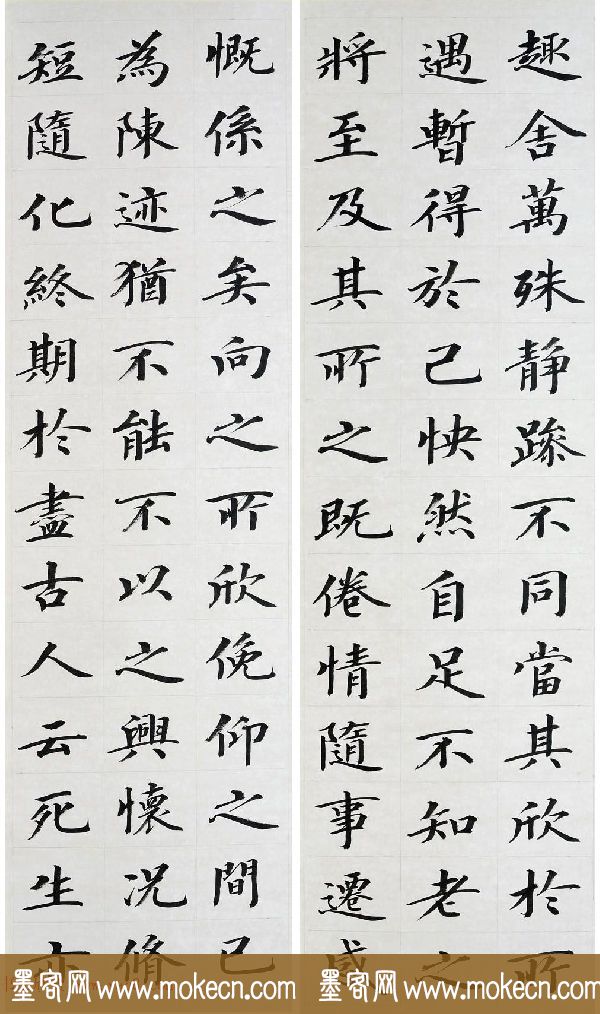 趣舍萬殊静踈不同當其欣於所
遇暫得於己快然自足不知老之
將至及其所之既倦情隨事遷感
慨係之矣向之所欣俛仰之間已
為陳迹猶不能不以之興懷况脩
短隨化終期於盡古人云死生亦
墨客网 www.mokecn.com
墨客网 www.mokecn.com